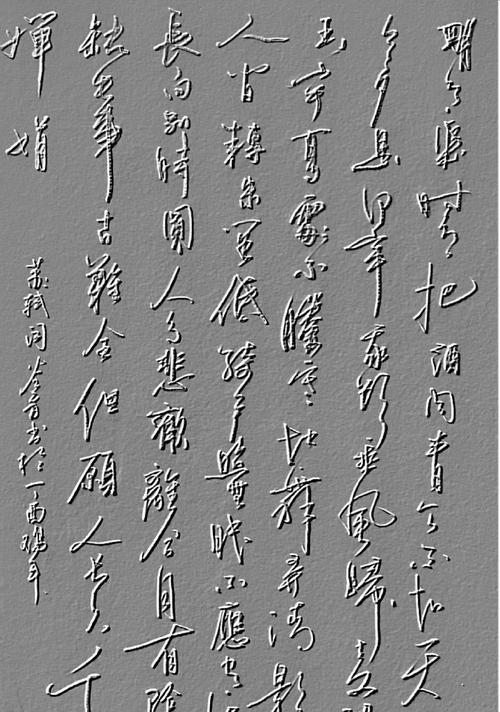 明月幾時有把酒問青天不知天
今夕是何年我欲乘風歸去又恐
玉宇高處不勝寒起舞弄清影
人間轉朱閣低綺戶照無眠不應有恨
長向別時圓人有悲歡離合月有陰
缺此事古難全但願人長久千
嬋娟
蘇軾詞 書於丁酉鷄年